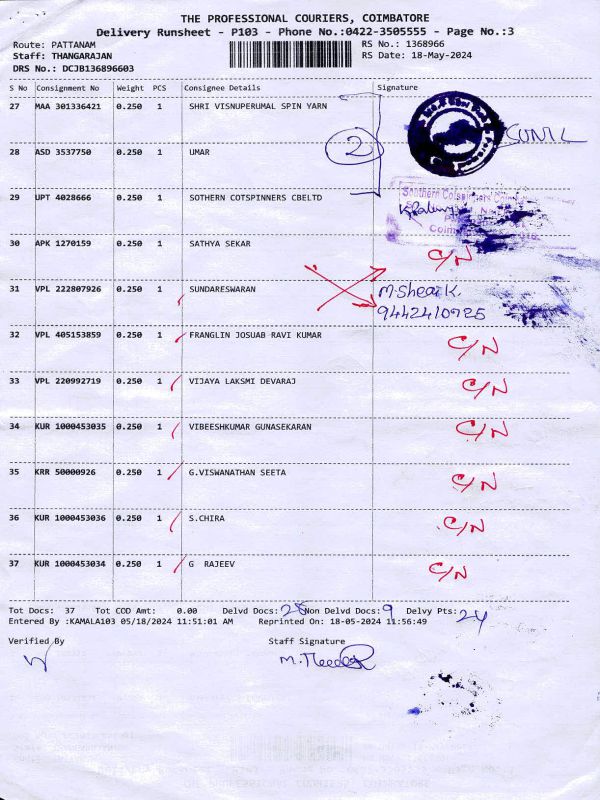 THE PROFESSIONAL COURIERS, COIMBATORE
Delivery Runsheet - P103 - Phone No.:0422-3505555 - Page No.:3
Route: PATTANAM RS No.: 1368966
Staff: THANGARAJAN RS Date: 18-May-2024
DRS No.: DCJB136896603
S No Consignment No Weight PCS Consignee Details Signature
27 MAA 301336421 0.250 1 SHRI VISNUPERUMAL SPIN YARN
2 SUNIL
28 ASD 3537750 0.250 1 UMAR
29 UPT 4028666 0.250 1 SOTHERN COTSPINNERS CBELTD Southern Cotspinners
30 APK 1270159 0.250 1 SATHYA SEKAR C/N
31 VPL 222807926 0.250 1 SUNDARESWARAN
9442410925
32 VPL 405153859 0.250 1 FRANGLIN JOSUAB RAVI KUMAR C/N
33 VPL 220992719 0.250 1 VIJAYA LAKSMI DEVARAJ C/N
34 KUR 1000453035 0.250 1 VIBEESHKUMAR GUNASEKARAN C/N
35 KRR 50000926 0.250 1 G.VISWANATHAN SEETA C/N
36 KUR 1000453036 0.250 1 S.CHIRA C/N
37 KUR 1000453034 0.250 1 G RAJEEV C/N
Tot Docs: 37 Tot COD Amt: 0.00 Delvd Docs: 28 Non Delvd Docs: 9 Delvy Pts: 24
Entered By :KAMALA103 05/18/2024 11:51:01 AM Reprinted On: 18-05-2024 11:56:49
Verified By Staff Signature